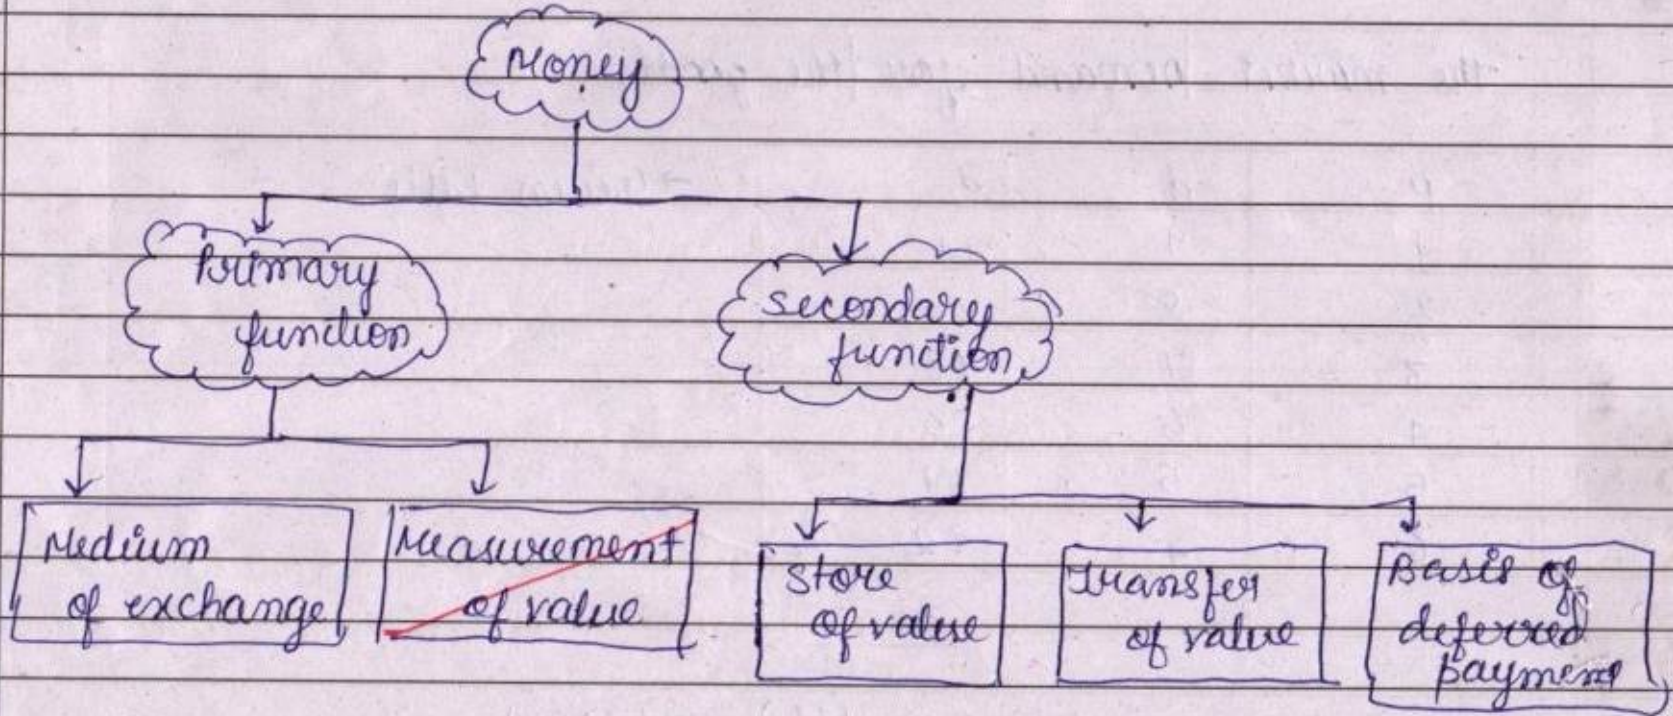 Money
Primary
function
secondary
function
Medium
of exchange
Measurement
of value
Store
of value
Transfer
of value
Basis of
deferred
payment